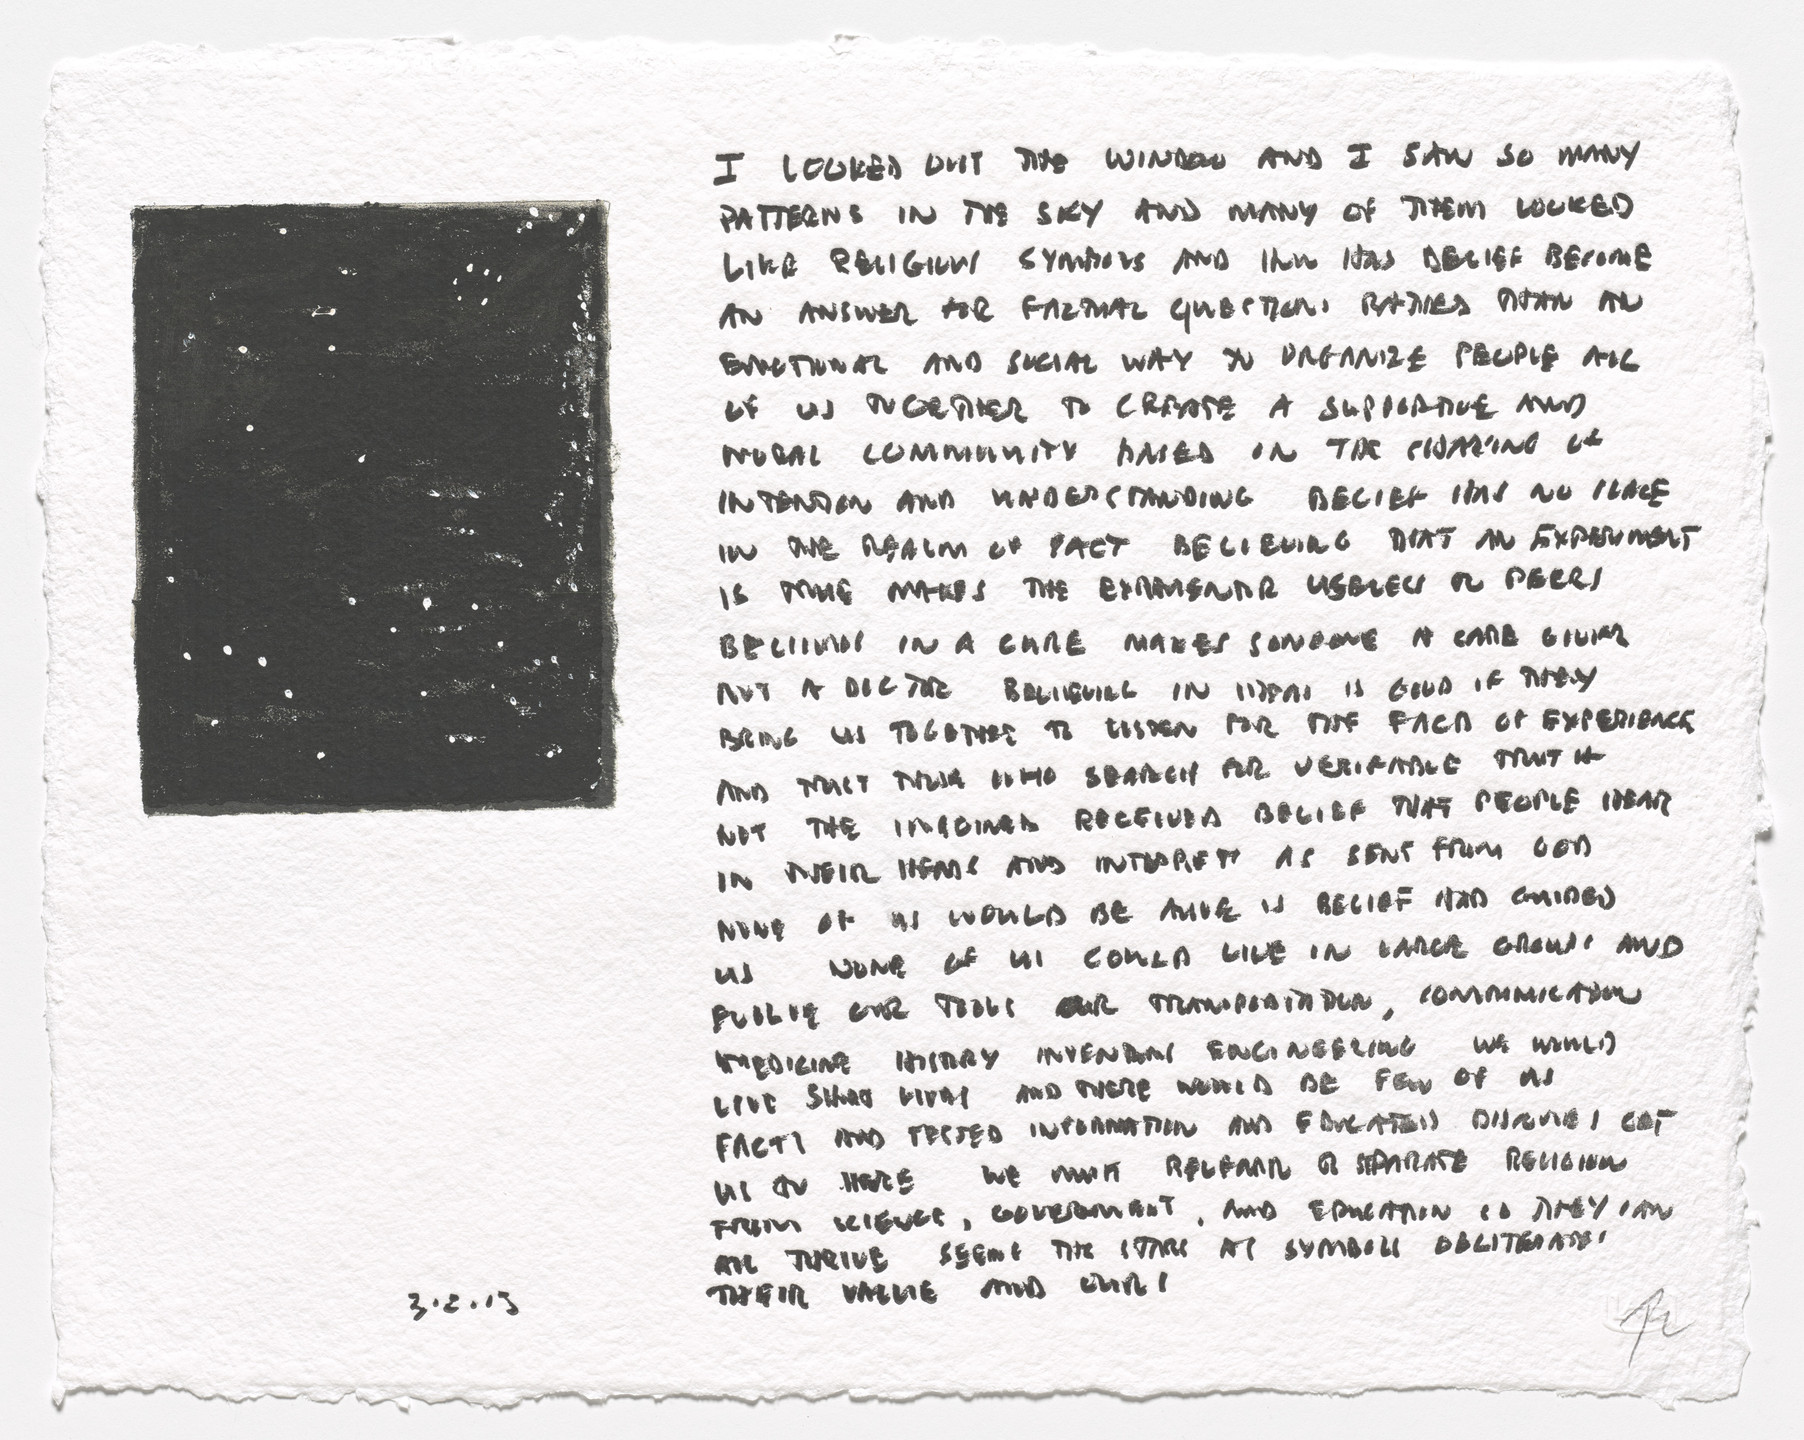 I LOOKED OUT THE WINDOW AND I SAW SO MANY
PATTERNS IN THE SKY AND MANY OF THEM LOOKED
LIKE RELIGIOUS SYMBOLS AND HAS BELIEF BECOME
AN ANSWER FOR FACTUAL QUESTIONS RATHER THAN AN
EMOTIONAL AND SOCIAL WAY TO ORGANIZE PEOPLE ALL
OF US TOGETHER TO CREATE A SUPPORTIVE AND
MORAL COMMUNITY BASED IN THE SHARING OF
INTENTION AND UNDERSTANDING BELIEF HAS NO PLACE
IN THE REALM OF FACT BELIEVING THAT AN EXPERIMENT
IS TRUE MAKES THE USELESS OR PEERS
BELIEVING IN A CURE MAKES SOMEONE A CARE GIVER
NOT A DOCTOR BELIEVING IN IDEAS IS GOOD IF THEY
BRING US TOGETHER TO LISTEN FOR THE FACTS OF EXPERIENCE
AND TRUST THOSE WHO SEARCH FOR VERIFABLE TRUTH
NOT THE IMAGINED RECEIVED BELIEF THAT PEOPLE HEAR
IN THEIR HEADS AND INTERPRET AS SENT FROM GOD
NONE OF US WOULD BE ALIVE IS BELIEF HAD GUIDED
US NONE OF US COULD LIVE IN LARGE GROUPS AND
EVOLVE OUR TOOLS OUR TRANSPORTATION, COMMUNICATION
MEDICINE HISTORY INVENTIONS ENGINEERING WE WOULD
LIVE SHORT LIVES AND THERE WOULD BE FEW OF US
FACTS AND TESTED INFORMATION AND EDUCATED GET
US TO HERE WE MUST OR SEPARATE RELIGION
FROM SCIENCE, GOVERNMENT, AND EDUCATION SO THEY CAN
ALL THRIVE SEEING THE STARS AS SYMBOLS OBLITERATES
THEIR VALUE AND OURS
3.2.15